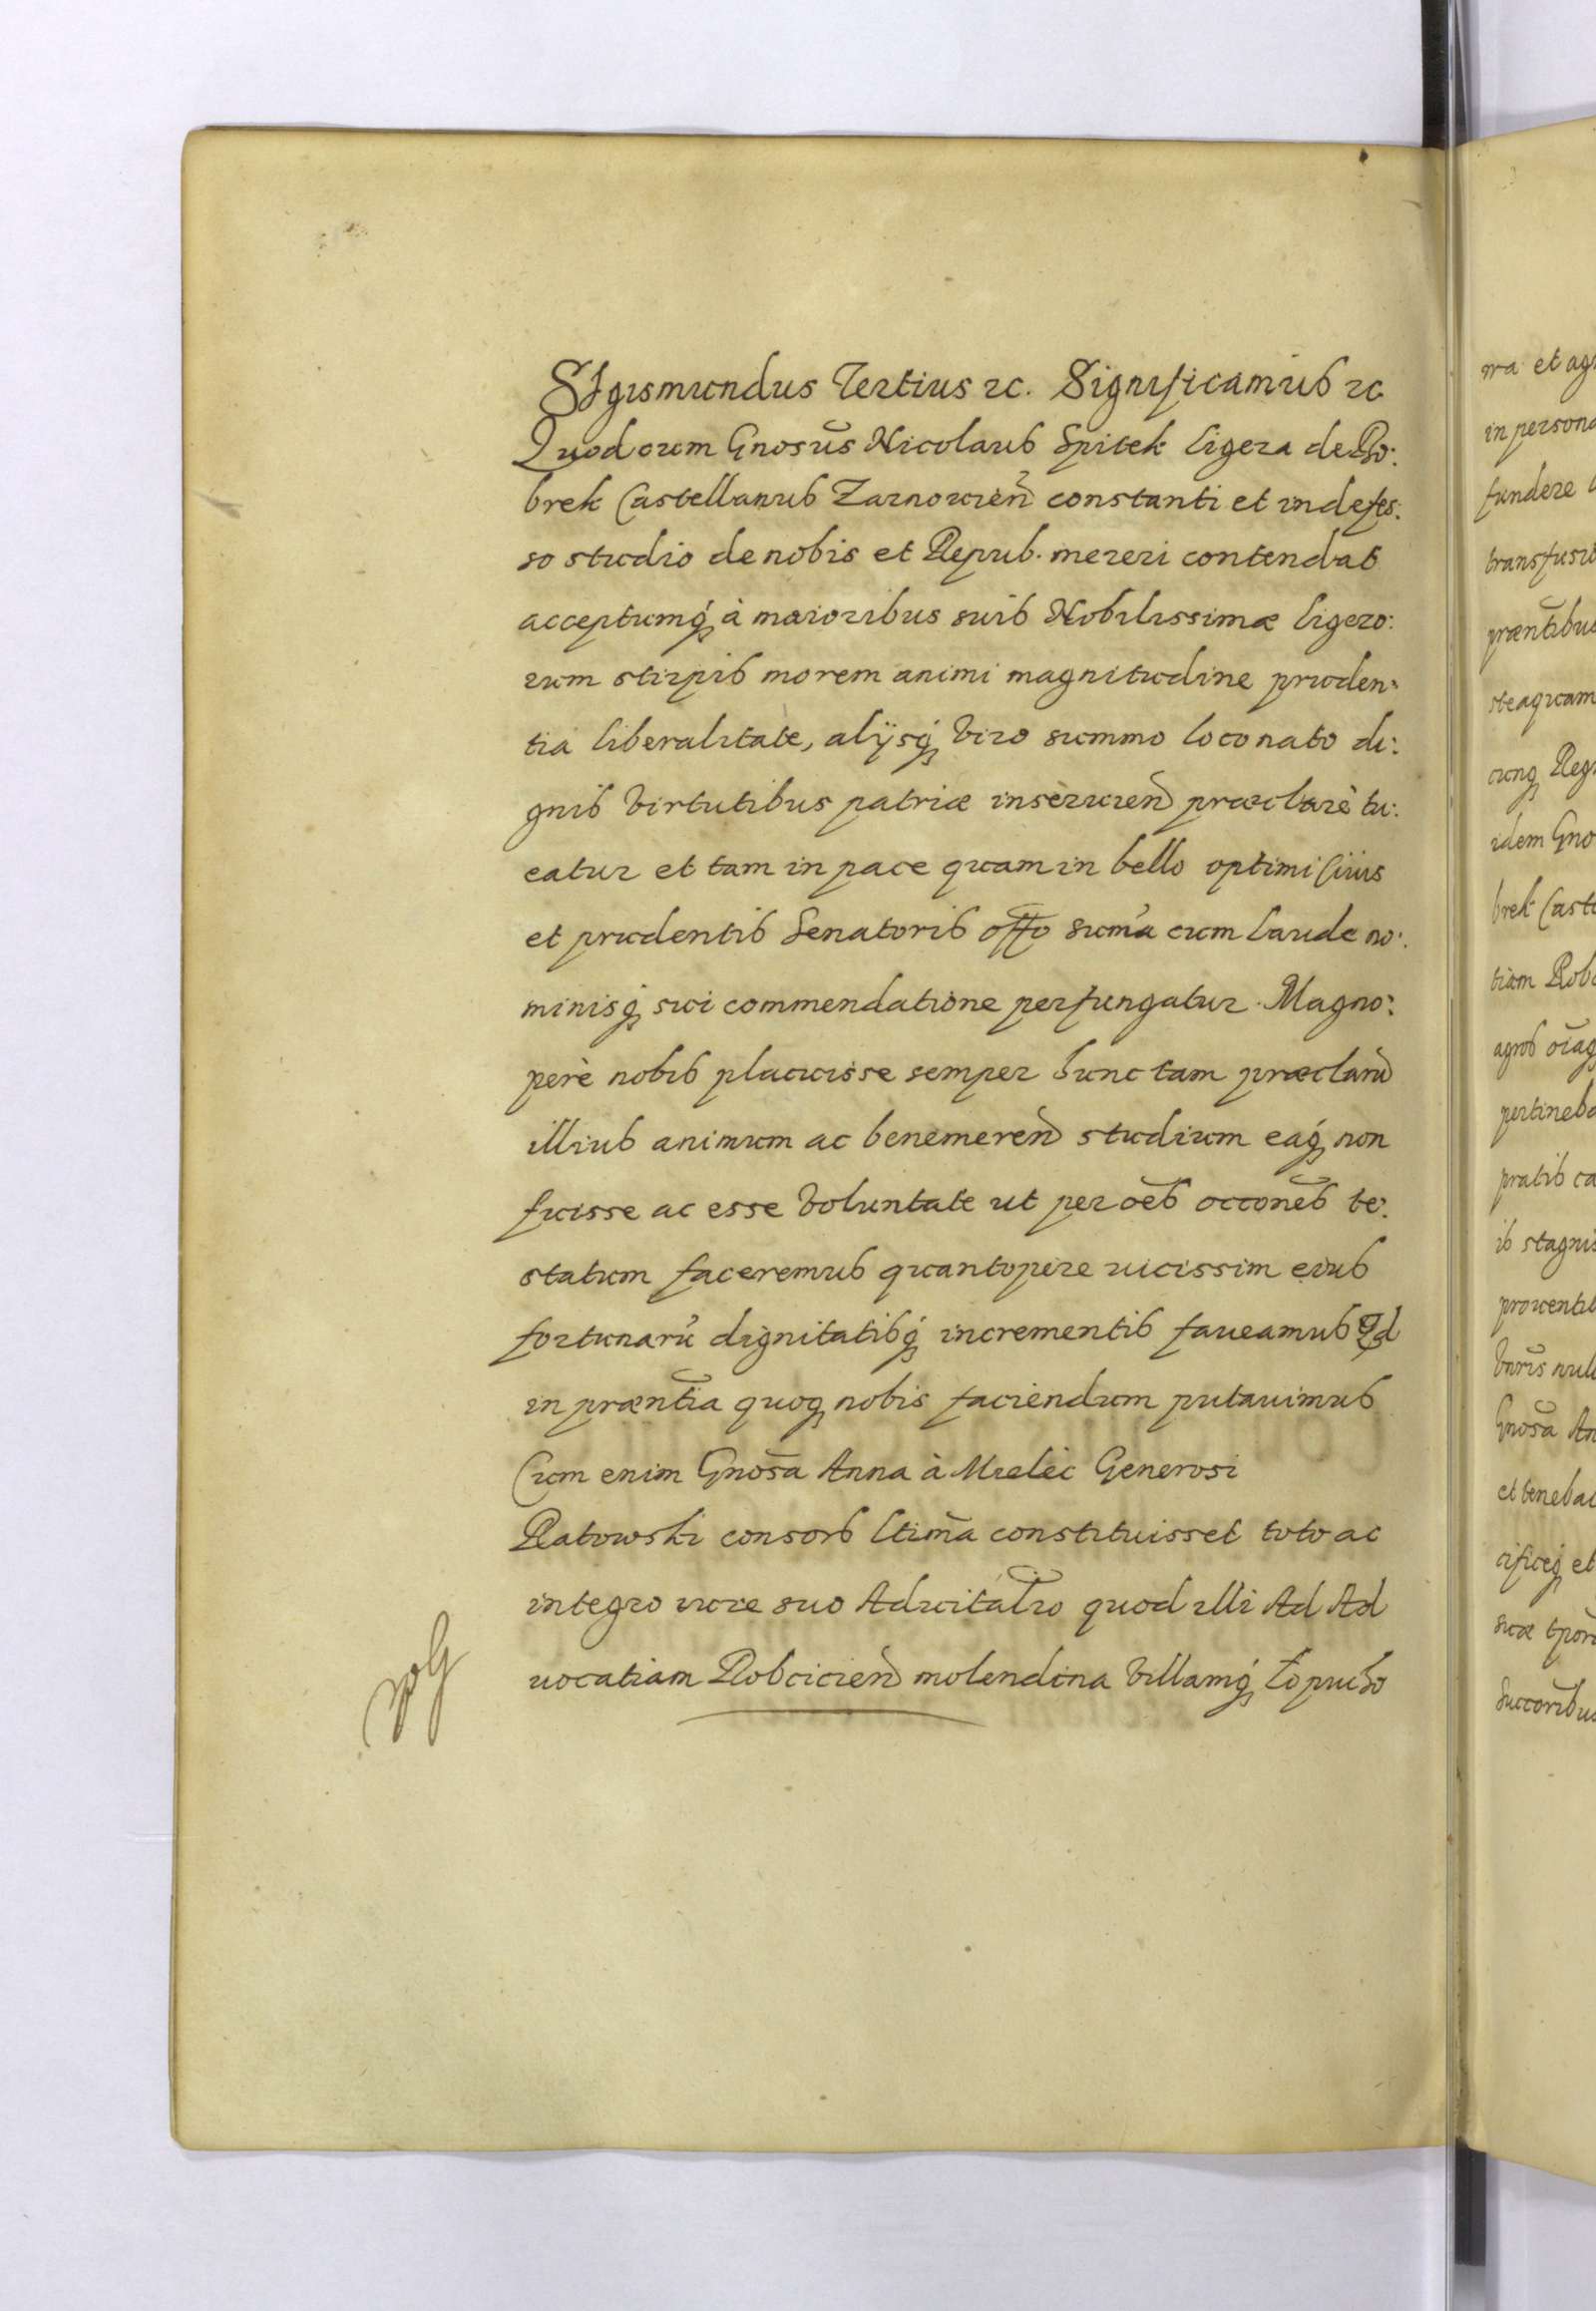 SIgismundus Tertius etc. Significamus etc
Quod cum Gnosus Nicolaus Spitek Ligeza de Bo:
brek Castellanus Zarnowien constanti et indefes:
so studio de nobis et Repub. mereri contendat
acceptumq à maioribus suis Nobilissimæ Ligezo:
rum stirpis morem animi magnitudine pruden:
tia liberalitate, alijsq viro summo loco nato di:
gnis virtutibus patriæ inseruien præclarè tu:
eatur et tam in pace quam in bello optimi Ciuis
et prudentis Senatoris offo suma cum laude no:
minisq sui commendatione perfungatur. Magno:
perè nobis placuisse semper hunc tam præclarū
illius animum ac benemeren studium eaq non
fuisse ac esse voluntate ut per oēs occones te:
statum faceremus quantopere uicissim eius
fortunarū dignitatisq incrementis faueamus Id
in præntia quoq nobis faciendum putauimus
Cum enim Gnosa Anna à Mielec Generosi
Ratowski consors Ltima constituisset toto ac
integro iure suo Aduitalio quod illi Ad Ad
uocatiam Robcicien molendina villamq Lopucho
ma et ag
in persona
fundere
transfusio
præntibus
steaquam
cunq Reg
idem Gno
brek Cast
tiam Rob
agros oiaq
pertineb
pratis ca
is stagnis
prouenti
Gnosa An
et teneba
cificeq et
suæ tpor
Succoribus